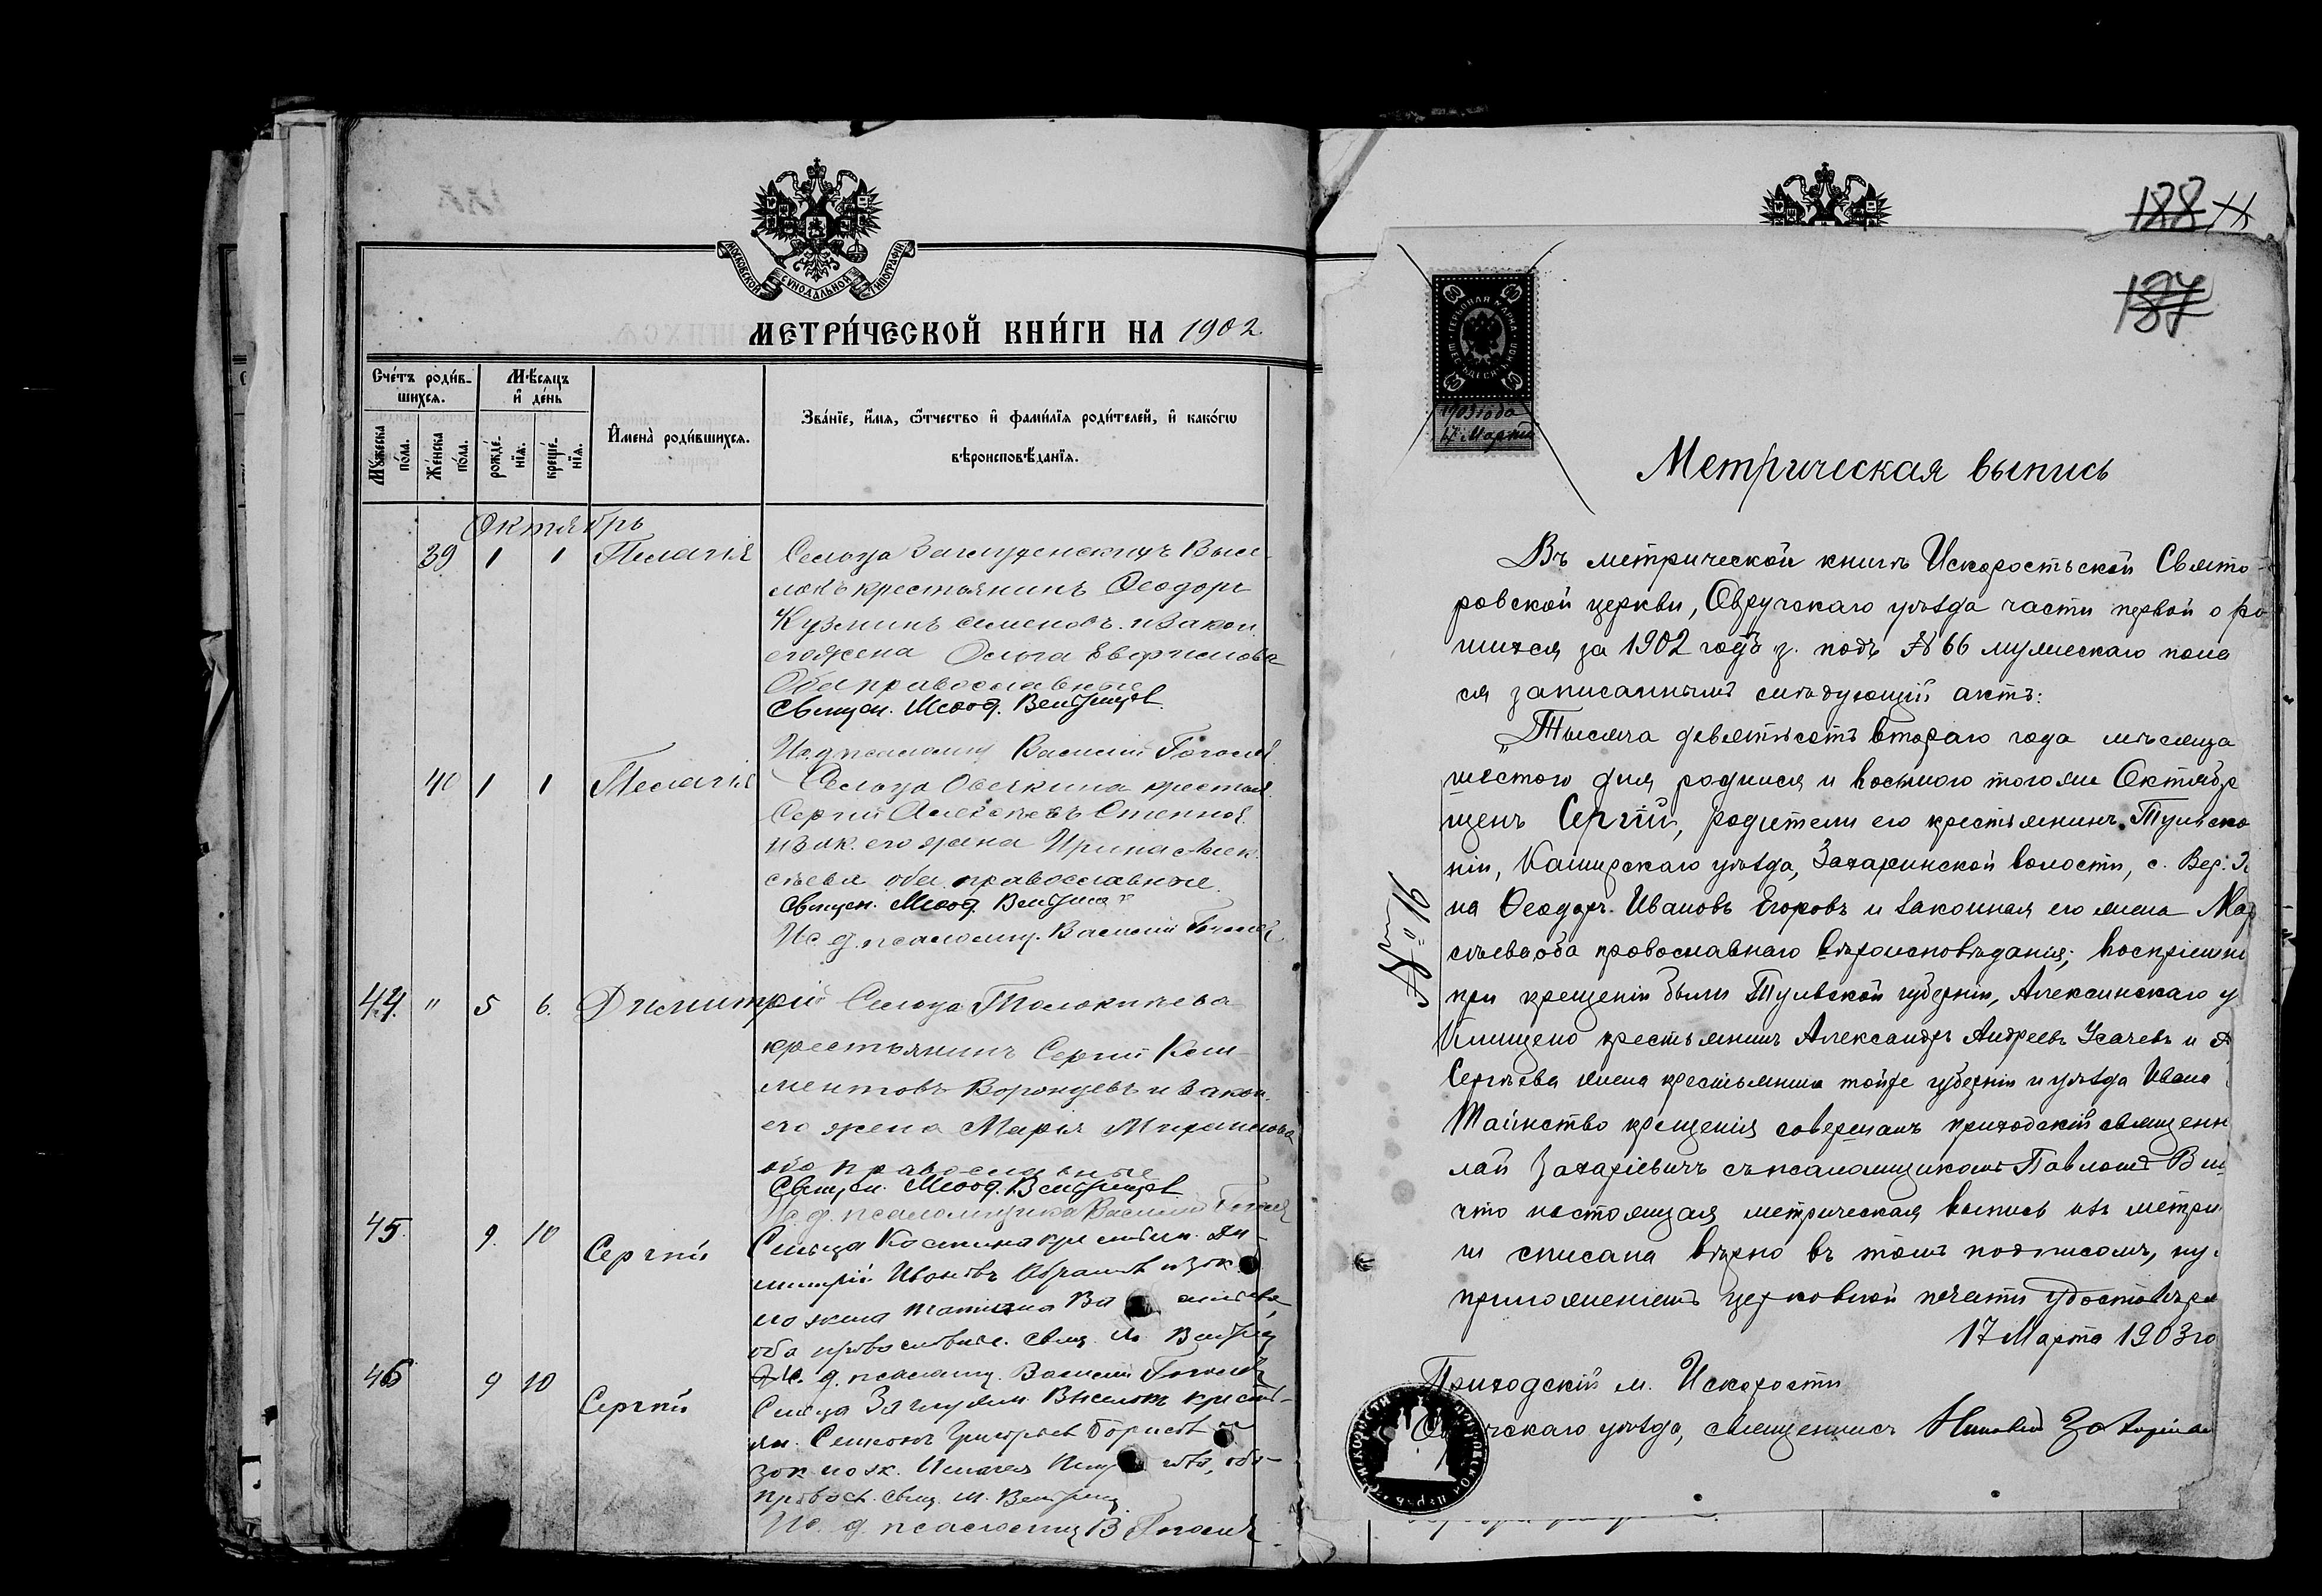 МОСКОВСКОЙ СѴНОДАЛЬНОЙ ТИПОГРАФІИ
МЕТРИ́ЧЕСКОЙ КНИ́ГИ НА 1902
Сче́тъ роди́в-
шихся.
Мѣ́сяцъ
и҆ де́нь
Мꙋ́жеска
по́ла.
Же́нска
по́ла.
рожде́-
нїя.
креще́-
нїя.
И҆мена̀ роди́вшихся.
Зва́нїе, и҆́мя, ѻ҆́тчество и҆ фами́лїя роди́телей, и҆ како́гѡ
вѣроисповѣ́данїя.
Октябрь
39 1 1 Пелагія Сельца Высе-
локъ крестьянинъ Ѳеодоръ
Кузминъ Семеновъ и закон.
его жена Ольга
Оба православные
Священ. Меѳод.
Ис. д. псаломщ Василій Гоголев
40 1 1 Пелагія Сельца Овечкина крестьян.
Сергій Алексѣевъ
и зак. его жена Ирина Алек-
сѣева оба православные.
Священ. Меѳод.
Ис. д. псаломщ. Василій
44. " 5 6. Димитрій Сельца Толокнѣева
крестьянинъ Сергій Кли-
ментовъ Воронцевъ и закон.
его жена Марія Михаилова
оба православные
Священ. Меѳод.
Ис. д. псаломщика Василій
45. 9. 10 Сергій Сельца Костина крестьян. Ди-
митрій Ивановъ и зак.
его жена Татіана
оба православные. свящ. М.
Ис. д. псаломщ. Василій Гоголевъ
46 9 10 Сергій Сельца Выселокъ крестьь-
ян. Григорьев Борисов и
зак. его ж.
правосл. свящ. М.
Ис. д. псаломщ В Гоголевъ
188
187
ГЕРБОВАЯ МАРКА
ШЕСТЬДЕСЯТЪ КОП.
1903 года
17 Марта
Метрическая выпись
Въ метрической книгѣ Искоростьской Свято-
ровской церкви, Овручскаго уѣзда части первой о ро
шихся за 1902 годъ подъ № 66 мужескаго пола
ся записаннымъ слѣдующій актъ:
„Тысяча девятьсотъ втораго года мѣсяца
шестого дня родился и восьмого того же Октябр
щенъ Сергій, родители его крестьянинъ Тульско
ніи, Каширскаго уѣзда, Захарьинской волости, с. Вер.
на Ѳеодоръ Ивановъ Егоровъ и законная его жена Ма
сѣева оба православнаго вѣроисповѣданія; воспріемни
при крещеніи были Тульской губерніи, Алексинскаго у
Клищено крестьянинъ Александръ Андреевъ Усачевъ и
Сергѣева жена крестьянина той же губерніи и уѣзда Ивана
Таинство крещенія совершалъ приходскій священн
лай Захаріевичъ съ псаломщикомъ Павломъ
что настоящая метрическая выпись изъ метри
ги списана вѣрно въ томъ подписомъ, ну.
приложеніемъ церковной печати удостовѣря
17 Марта 1903 го
№ 16
Приходскій м. Искорости
Овручскаго уѣзда, священникъ Николай Захаріеви